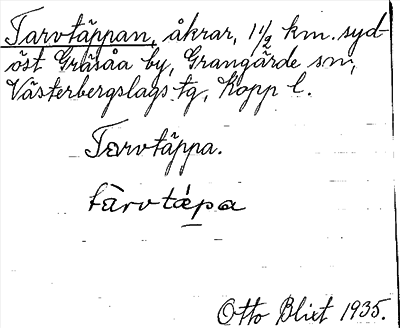 Tarvtäppan, åkrar, 1 1/2 km. syd-
öst Gräsåa by, Grangärde sn,
Västerbergslags tg, Kopp l.
Tarvtäppa.
tàrvtä́pa
Otto Blixt 1935.